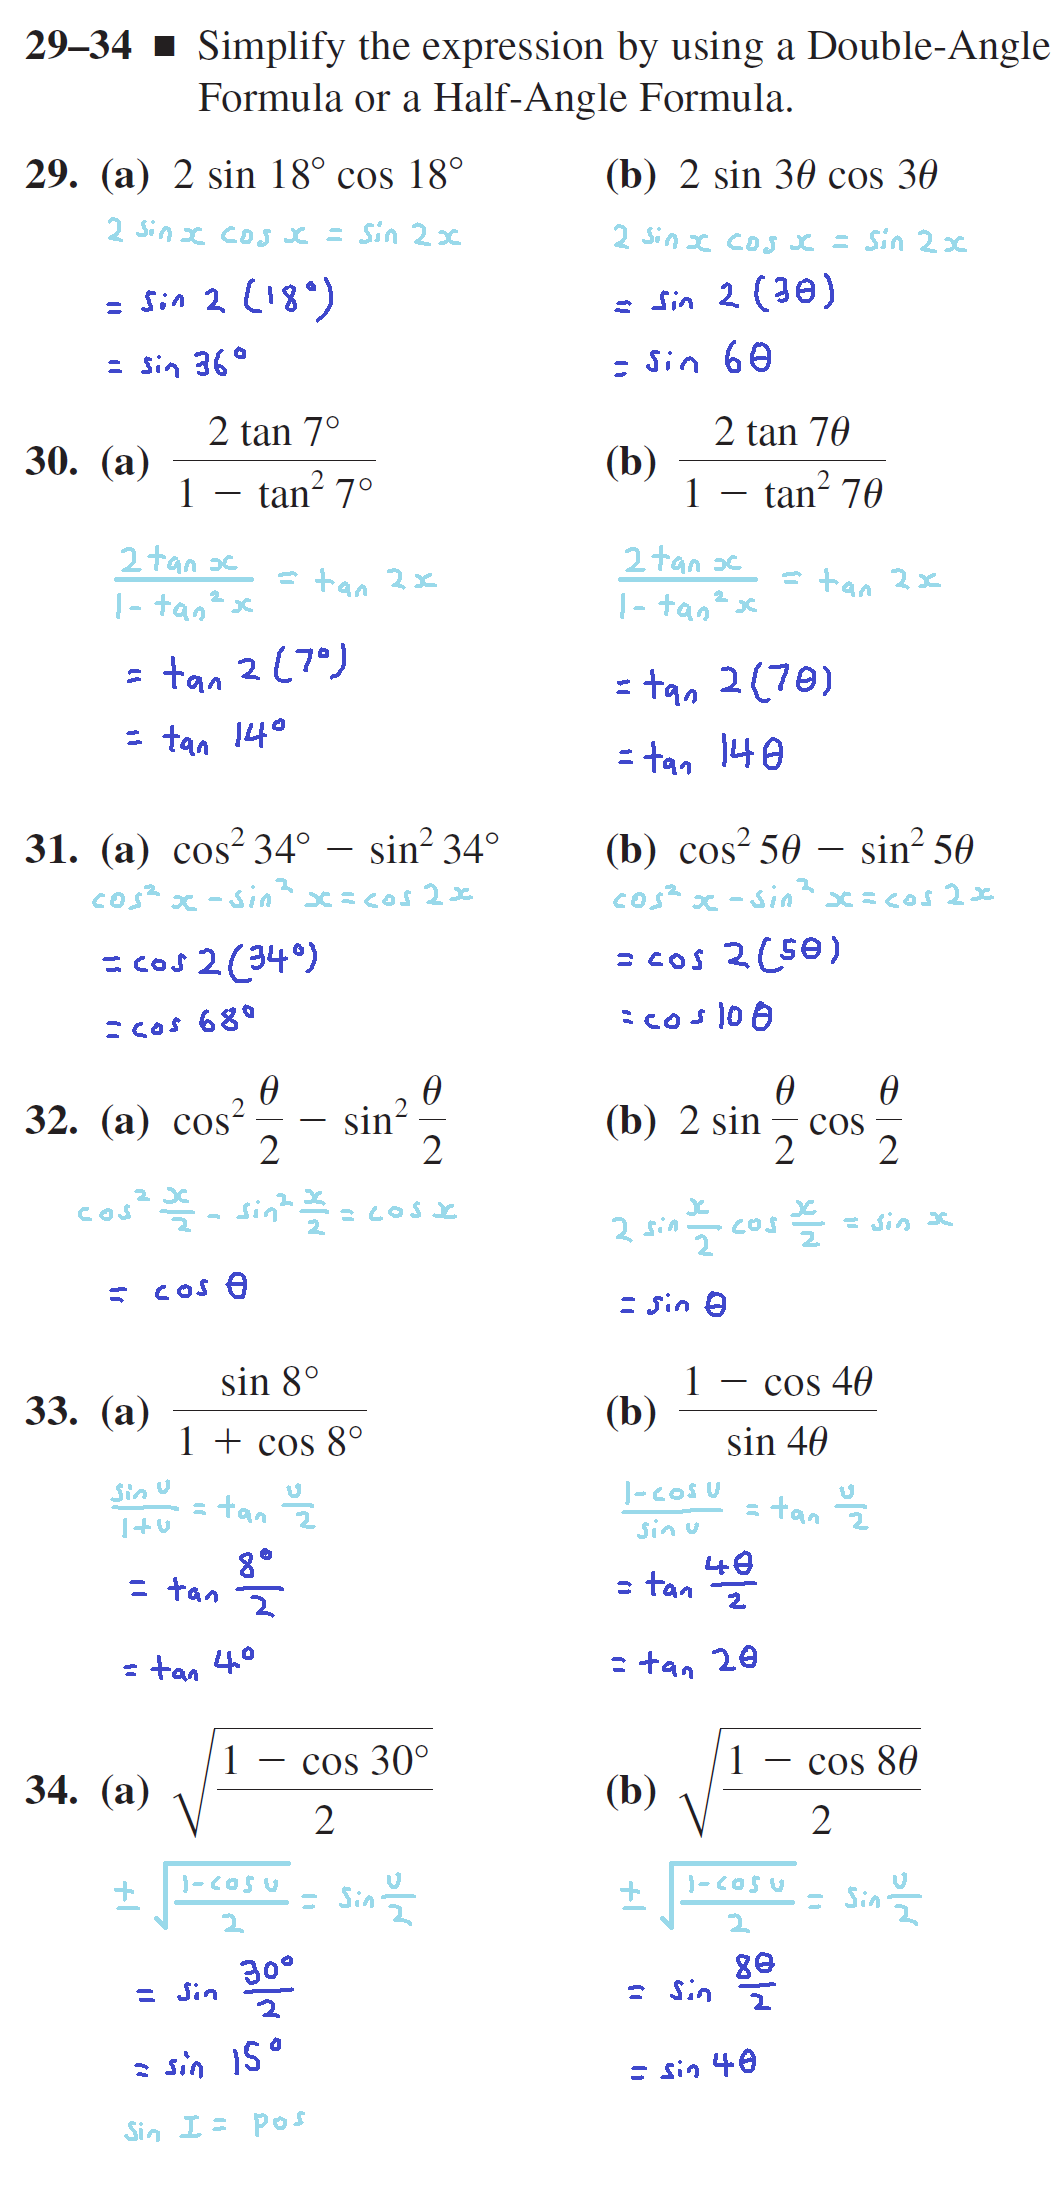 29–34 ■ Simplify the expression by using a Double-Angle
Formula or a Half-Angle Formula.
29. (a) 2 sin 18° cos 18°
2 sin x cos x = sin 2x
= sin 2 (18°)
= sin 36°
(b) 2 sin 3θ cos 3θ
2 sin x cos x = sin 2x
= sin 2 (3θ)
= sin 6θ
30. (a) 2 tan 7° / 1 − tan² 7°
2 tan x / 1 - tan² x = tan 2x
= tan 2 (7°)
= tan 14°
(b) 2 tan 7θ / 1 − tan² 7θ
2 tan x / 1 - tan² x = tan 2x
= tan 2(7θ)
= tan 14θ
31. (a) cos² 34° − sin² 34°
cos² x - sin² x = cos 2x
= cos 2(34°)
= cos 68°
(b) cos² 5θ − sin² 5θ
cos² x - sin² x = cos 2x
= cos 2(5θ)
= cos 10θ
32. (a) cos² θ/2 − sin² θ/2
cos² x/2 - sin² x/2 = cos x
= cos θ
(b) 2 sin θ/2 cos θ/2
2 sin x/2 cos x/2 = sin x
= sin θ
33. (a) sin 8° / 1 + cos 8°
sin u / 1+u = tan u/2
= tan 8°/2
= tan 4°
(b) 1 − cos 4θ / sin 4θ
1-cos u / sin u = tan u/2
= tan 4θ/2
= tan 2θ
34. (a) √(1 − cos 30° / 2)
± √(1-cos u / 2) = sin u/2
= sin 30°/2
= sin 15°
sin I = pos
(b) √(1 − cos 8θ / 2)
± √(1-cos u / 2) = sin u/2
= sin 8θ/2
= sin 4θ